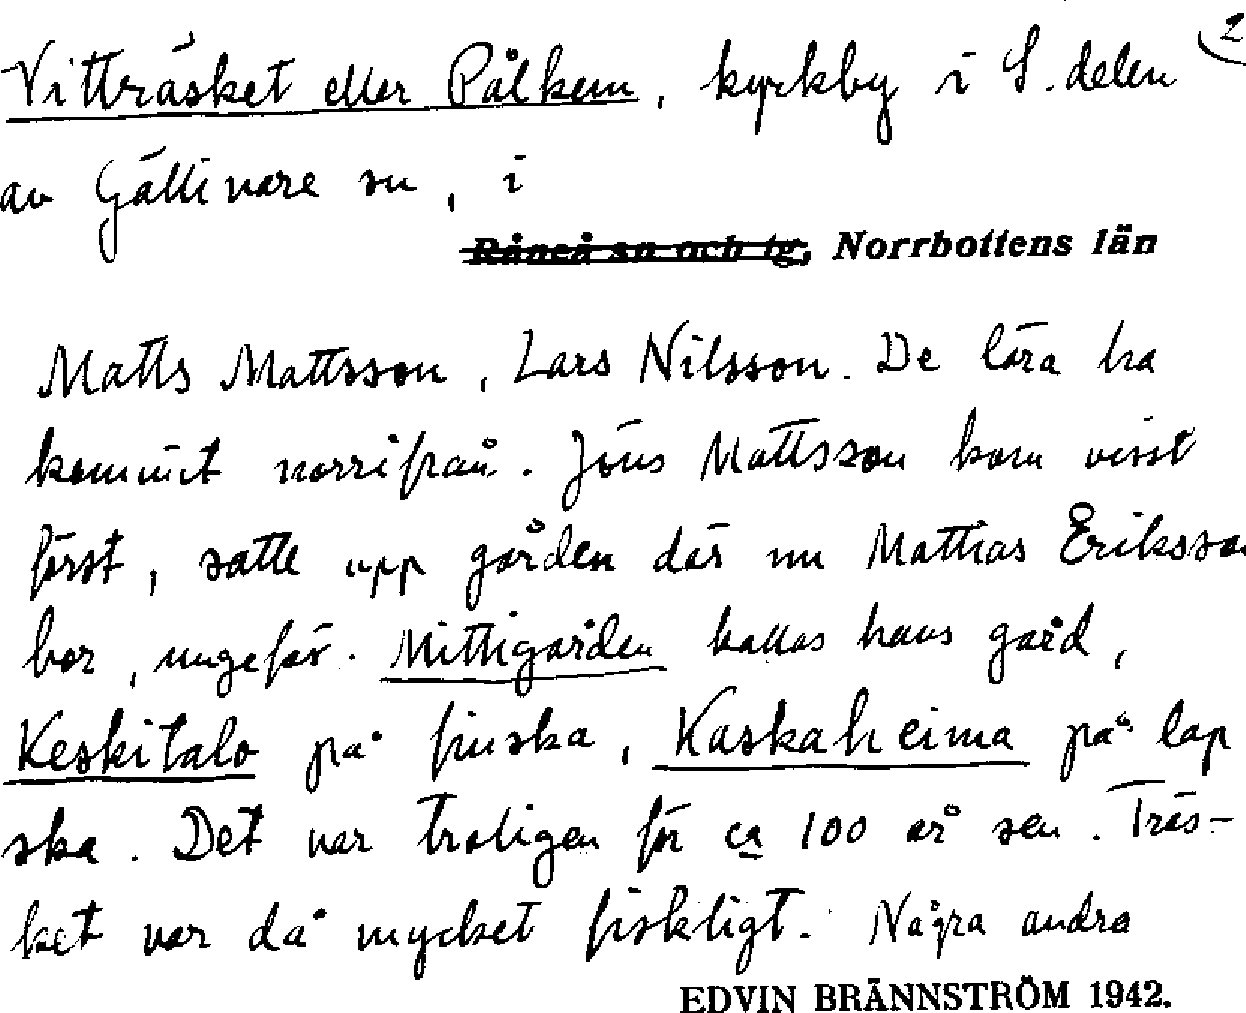 2
Vitträsket eller Pålkem, kyrkby i S. delen
av Gällivare sn, i
Råneå sn och tg, Norrbottens län
Matts Mattsson, Lars Nilsson. De lära ha
kommit norrifrån. Jöns Mattsson kom visst
först, satte upp gården där nu Mattias Eriksson
bor, ungefär. Mittigården kallas hans gård,
Keskitalo på finska, Kaskaheima på lap
ska. Det var troligen för ca 100 år sen. Träs-
ket var då mycket fiskligt. Några andra
EDVIN BRÄNNSTRÖM 1942.